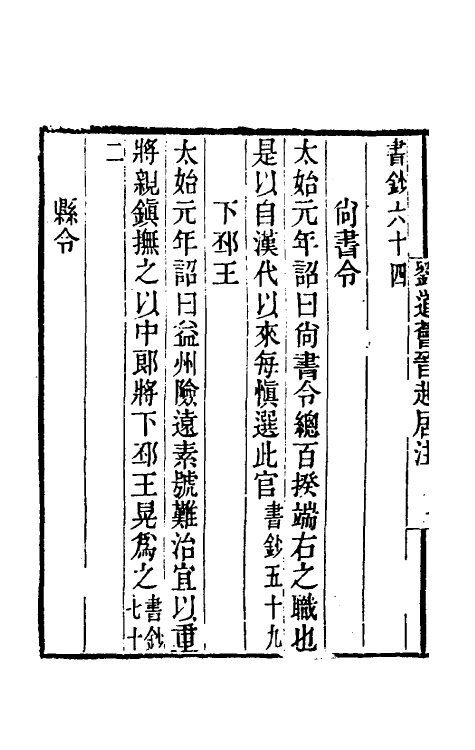 劉道薈晉起居注
書鈔六十四
尙書令
太始元年詔曰尙書令總百揆端右之職也
是以自漢代以來每愼選此官書鈔五十九
下邳王
太始元年詔曰益州險遠素號難治宜以重
將親鎭撫之以中郎將下邳王晃爲之書鈔七十
二
縣令